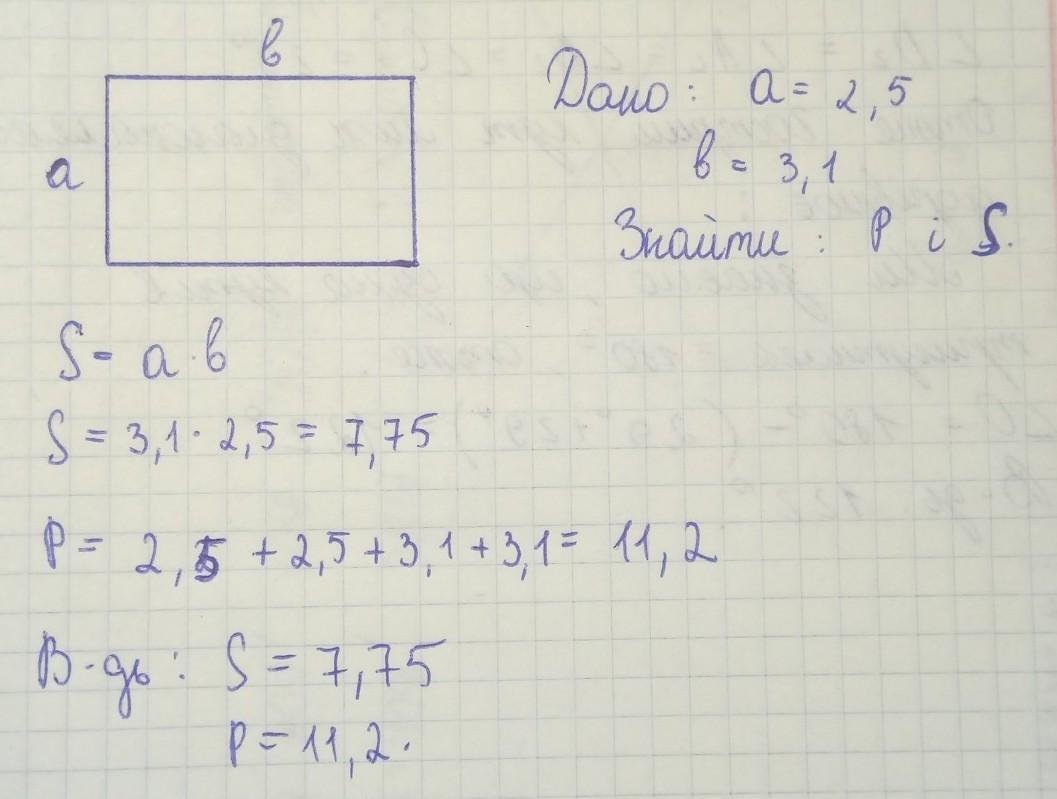 в
a
Дано: a = 2,5
в = 3,1
Знайти: P i S.
S = a · в
S = 3,1 · 2,5 = 7,75
P = 2,5 + 2,5 + 3,1 + 3,1 = 11,2
В-дь: S = 7,75
P = 11,2.